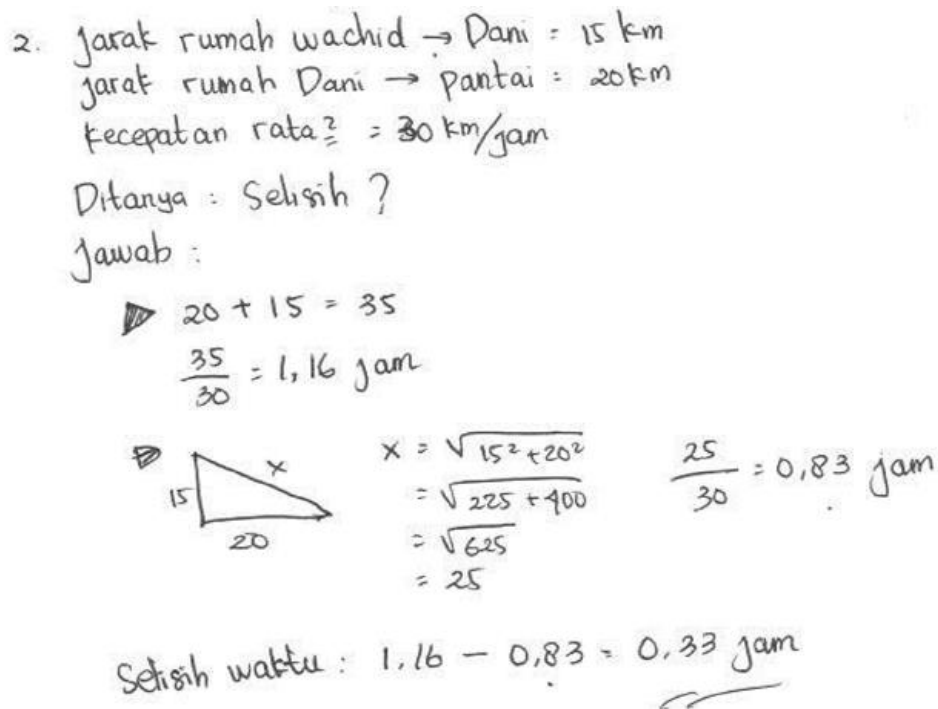 2. Jarak rumah wachid → Dani = 15 km
Jarak rumah Dani → pantai = 20 km
Kecepatan rata2 = 30 km/jam
Ditanya : Selisih ?
Jawab :
20 + 15 = 35
35/30 = 1,16 jam
15
x
20
x = √15² + 20²
= √225 + 400
= √625
= 25
25/30 = 0,83 jam
Selisih waktu : 1.16 - 0,83 = 0.33 jam